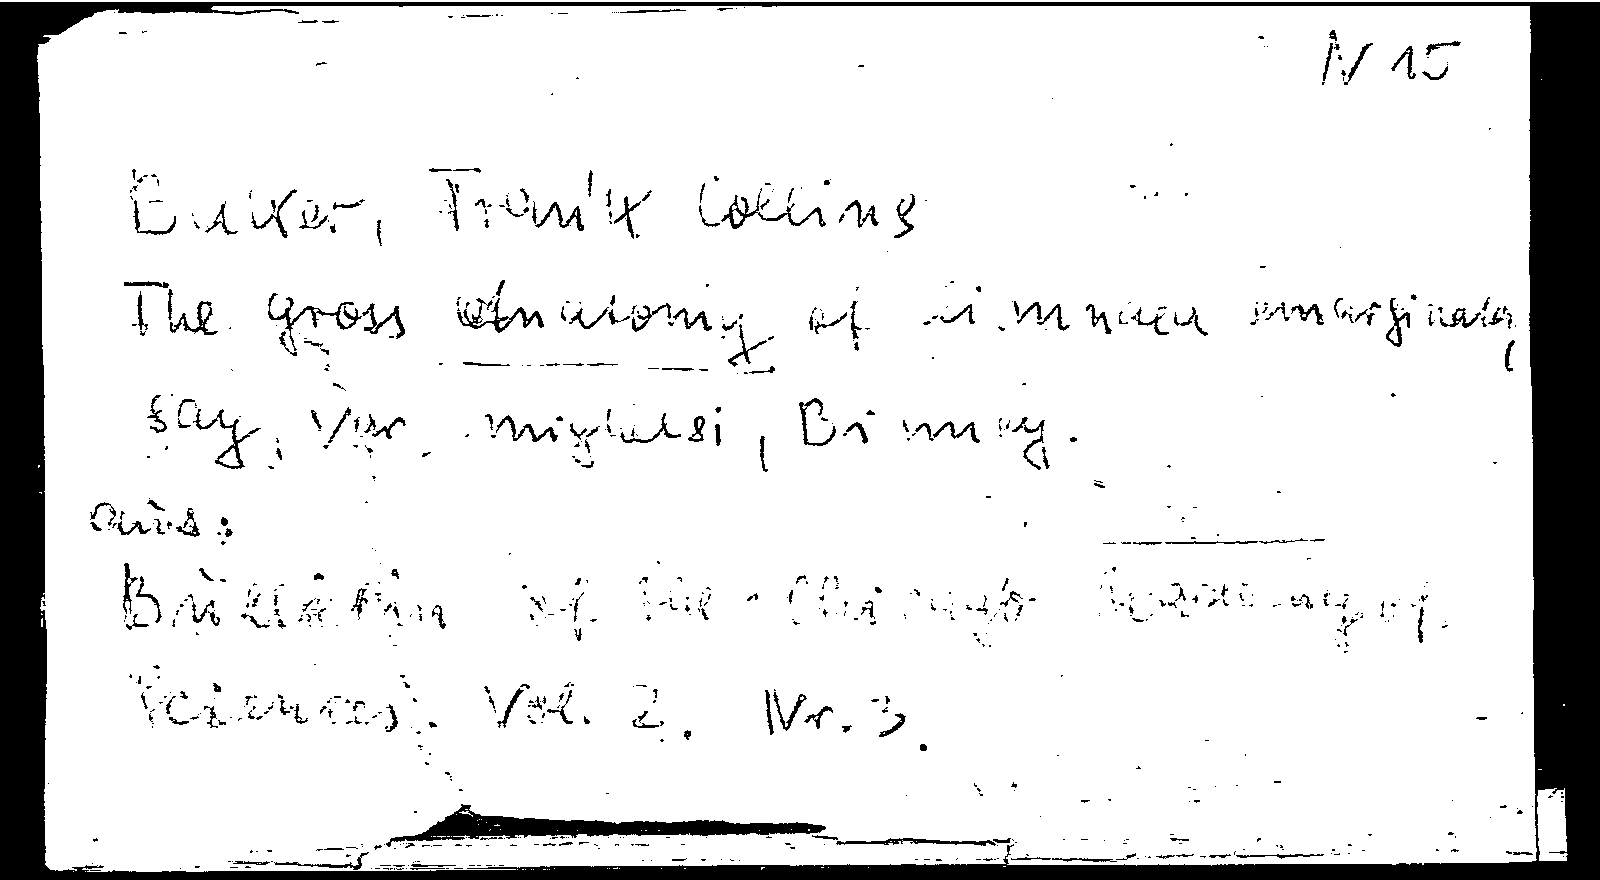 N 15
Baker, Frank Collins
The gross Anatomy of Limnaea emarginata,
say, Var. mighelsi, Binney.
aus:
Bulletin of the Chicago Academy of
Sciences. Vol. 2. Nr. 3.